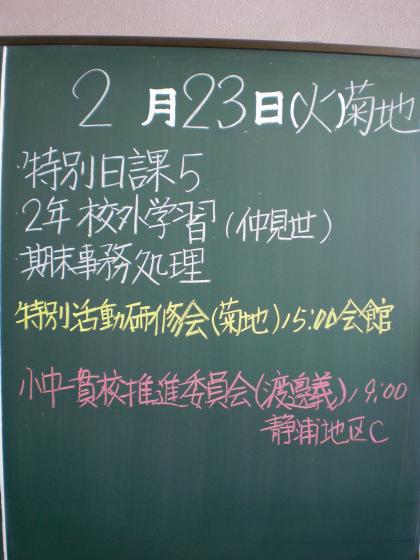 2月23日(火)菊地
特別日課5
2年校外学習(仲見世)
期末事務処理
特別活動研修会(菊地)15:00会館
小中一貫校推進委員会(渡邉義)19:00
静浦地区C